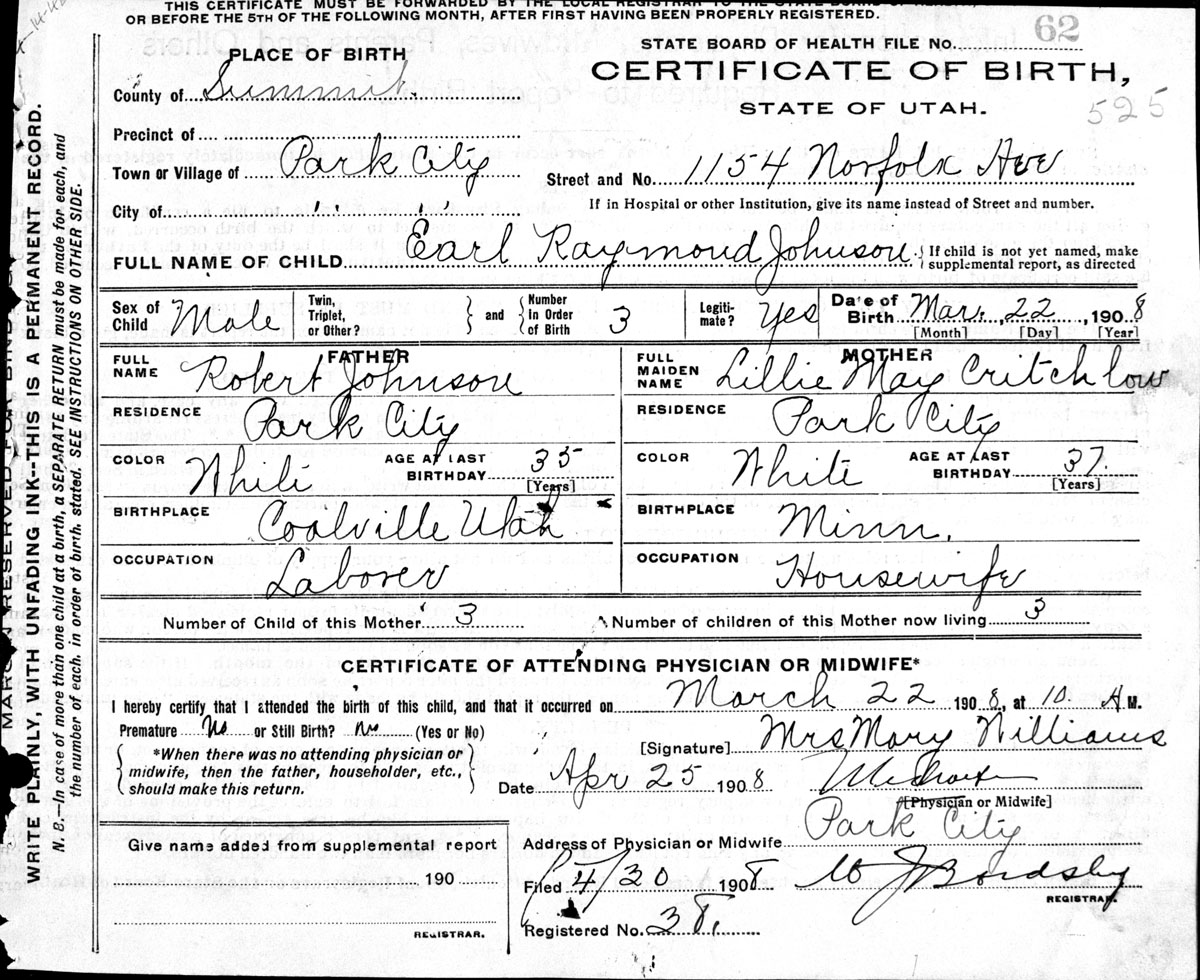 THIS CERTIFICATE MUST BE FORWARDED BY THE LOCAL REGISTRAR TO THE STATE BOARD OF HEALTH,
OR BEFORE THE 5TH OF THE FOLLOWING MONTH, AFTER FIRST HAVING BEEN PROPERLY REGISTERED.
PLACE OF BIRTH
STATE BOARD OF HEALTH FILE No. 62
CERTIFICATE OF BIRTH,
STATE OF UTAH.
525
County of Summit
Precinct of
Town or Village of Park City
Street and No. 1154 Norfolk Ave
City of
If in Hospital or other Institution, give its name instead of Street and number.
FULL NAME OF CHILD Earl Raymond Johnson
If child is not yet named, make
supplemental report, as directed
Sex of Child Male
Twin, Triplet, or Other?
and
Number In Order of Birth 3
Legiti-mate? Yes
Date of Birth Mar. 22, 1908
[Month] [Day] [Year]
FATHER
FULL NAME Robert Johnson
RESIDENCE Park City
COLOR White
AGE AT LAST BIRTHDAY 35
[Years]
BIRTHPLACE Coalville Utah
OCCUPATION Laborer
MOTHER
FULL MAIDEN NAME Lillie May Critchlow
RESIDENCE Park City
COLOR White
AGE AT LAST BIRTHDAY 37.
[Years]
BIRTHPLACE Minn.
OCCUPATION Housewife
Number of Child of this Mother 3
Number of children of this Mother now living 3
CERTIFICATE OF ATTENDING PHYSICIAN OR MIDWIFE*
I hereby certify that I attended the birth of this child, and that it occurred on March 22 1908, at 10. A M.
Premature No or Still Birth? no (Yes or No)
*When there was no attending physician or
midwife, then the father, householder, etc.,
should make this return.
[Signature] Mrs Mary Williams
Date Apr 25 1908
Midwife
[Physician or Midwife]
Give name added from supplemental report
190
REGISTRAR.
Address of Physician or Midwife Park City
Filed 4/30 1908
REGISTRAR.
Registered No. 38.
MARGIN RESERVED FOR BINDING
WRITE PLAINLY, WITH UNFADING INK--THIS IS A PERMANENT RECORD.
N. B.--In case of more than one child at a birth, a SEPARATE RETURN must be made for each, and
the number of each, in order of birth, stated. SEE INSTRUCTIONS ON OTHER SIDE.